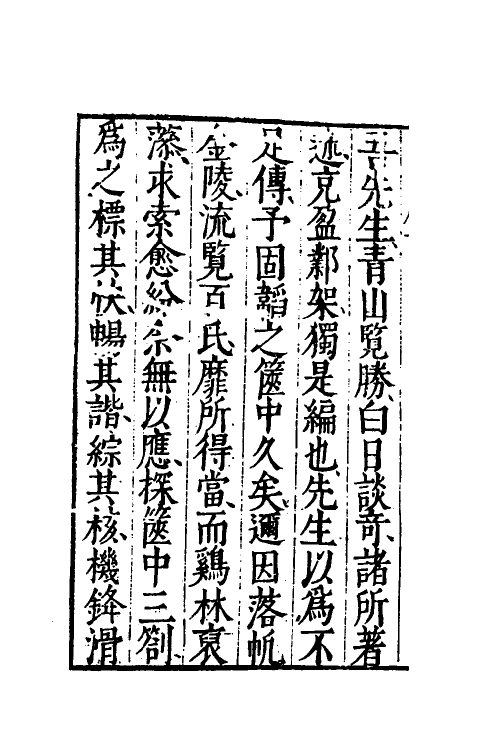 先生青山覽勝白日談奇諸所著
述充盈鄴架獨是編也先生以為不
足傳予固韜之篋中久矣邇因落帆
金陵流覽百氏靡所得當而鷄林裒
蓀求索愈紛糸無以應探篋中三劄
為之標其伏暢其諧綜其核機鋒滑